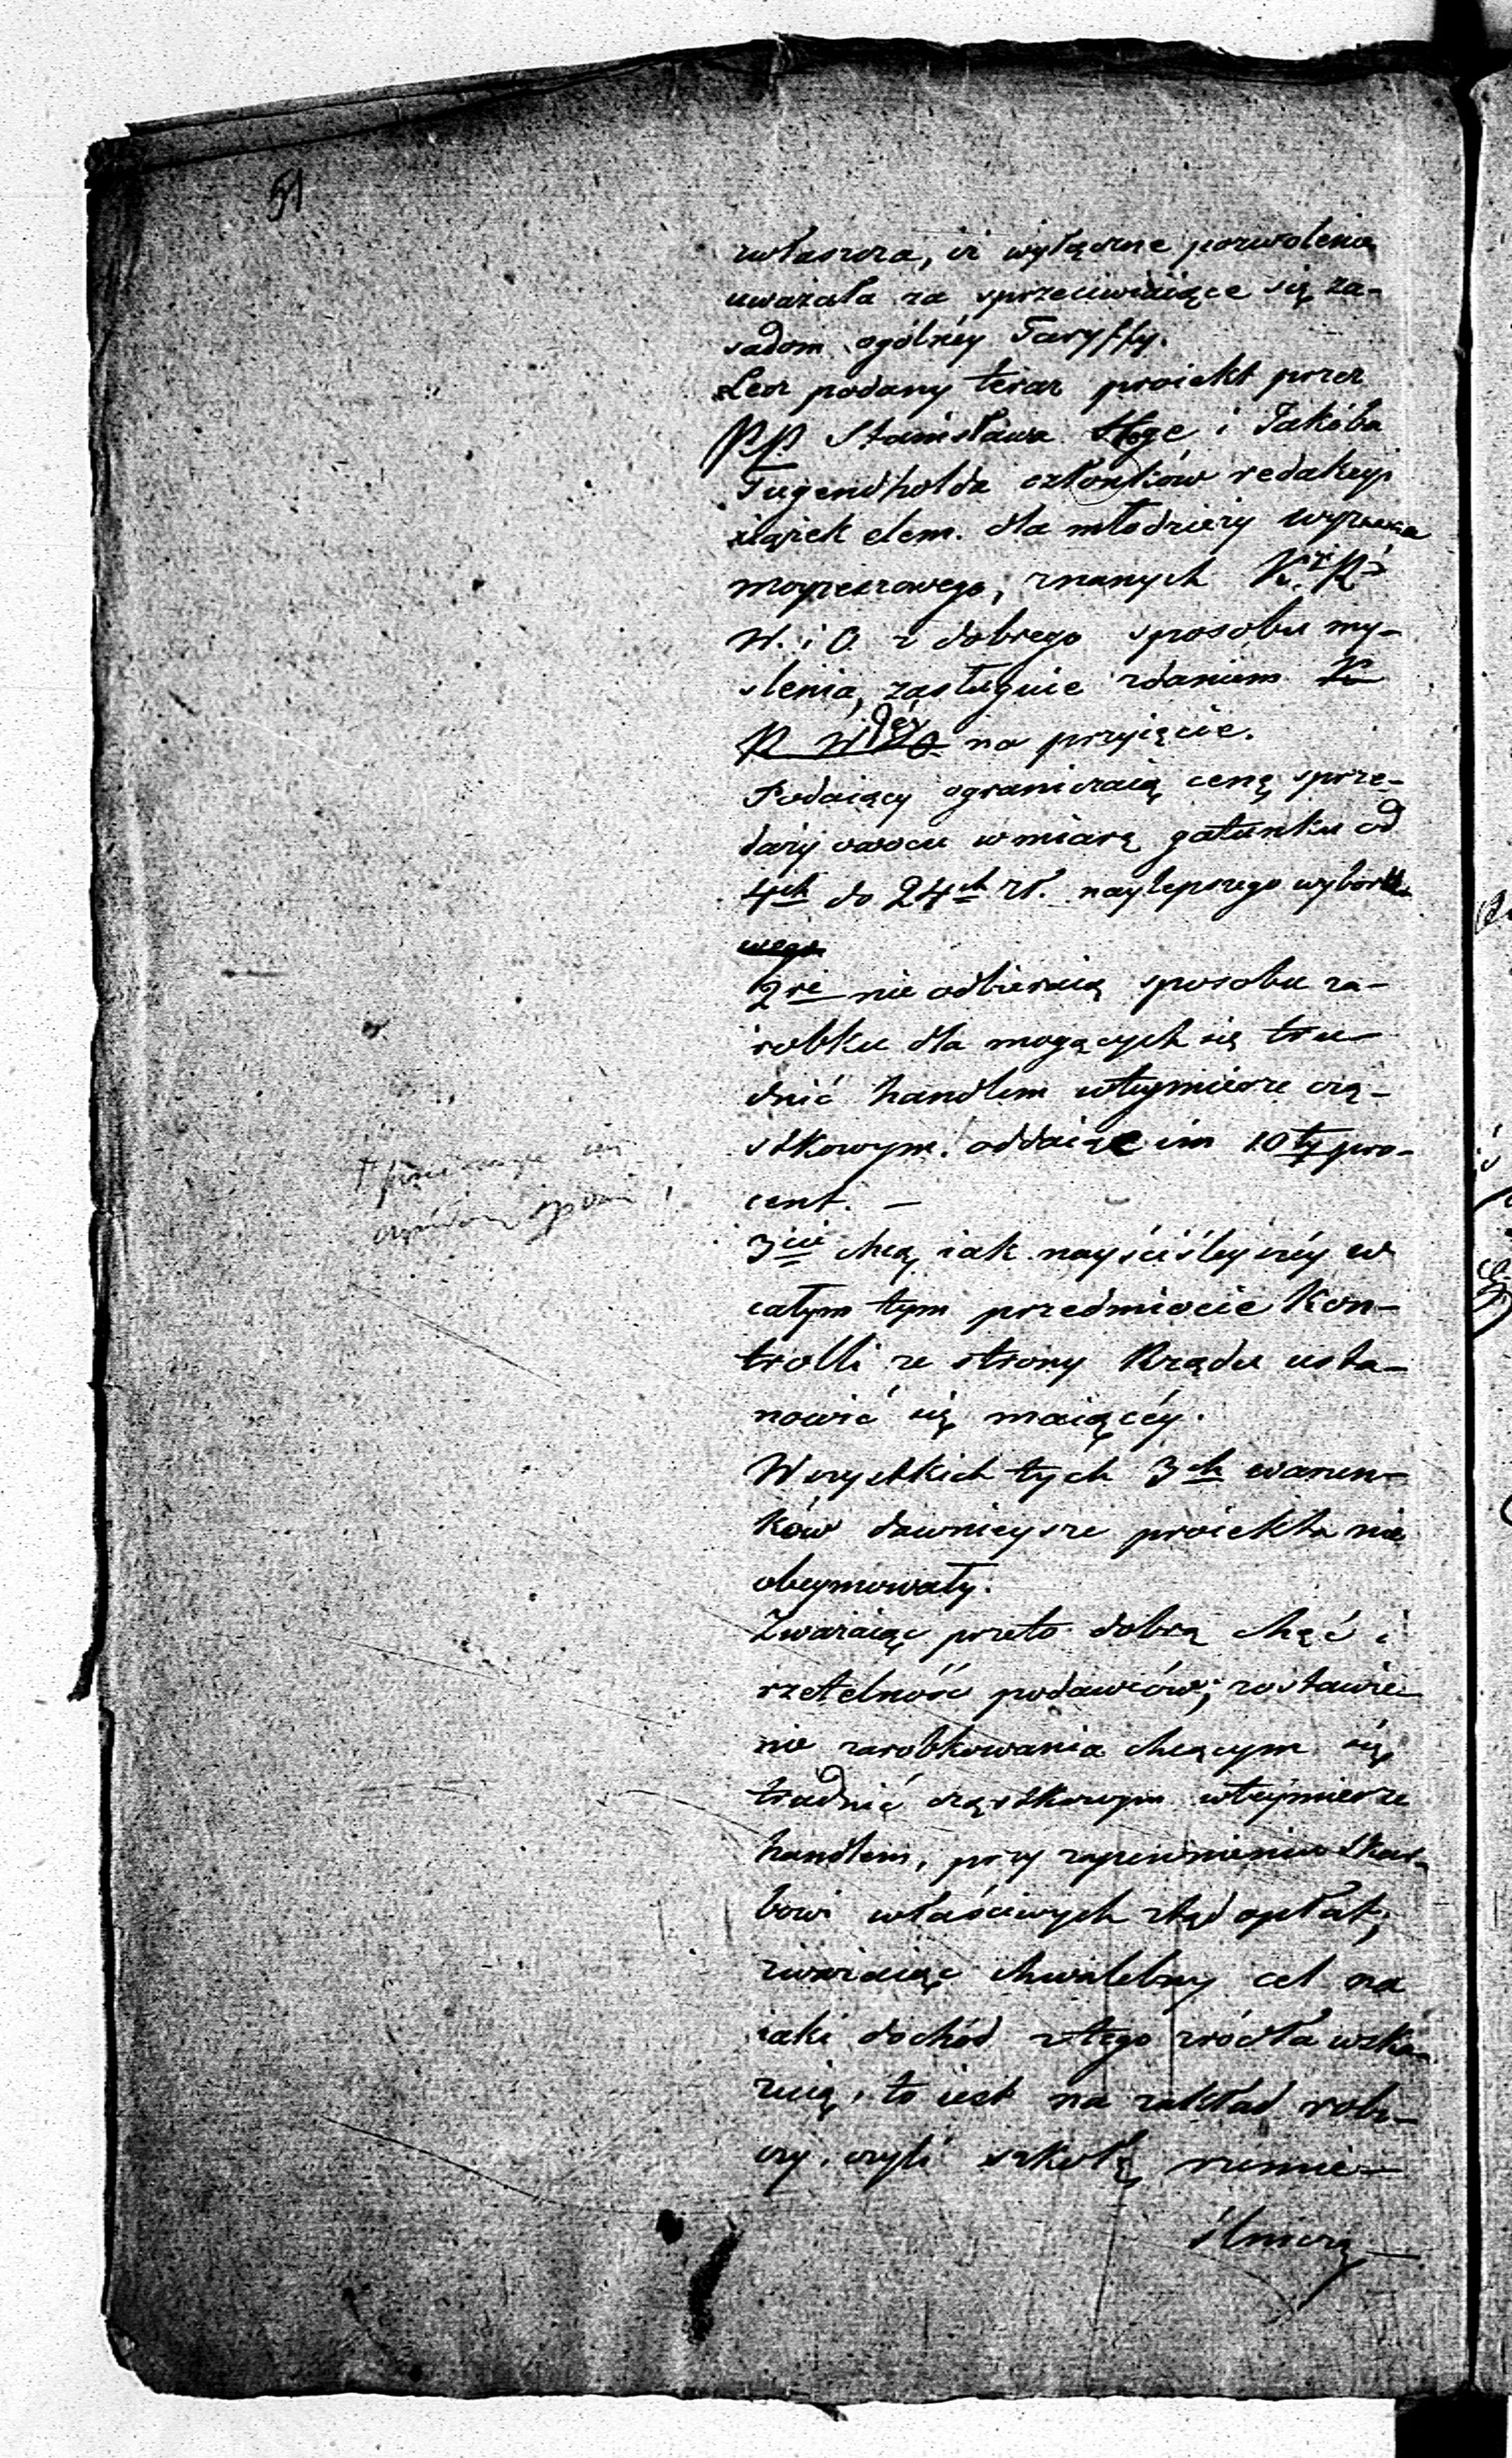 51
zwłaszcza, iż wyłączne pozwolenia
uważała za sprzeciwiaiące się za-
sadom ogólnéy Taryffy.
Lecz podany teraz proiekt przez
PP. Stanisława Hoge i Jakóba
Tugendholda członków redakcyi
xiążek elem. dla młodzieży wyzna
moyżeszowego, znanych
W. i O. z dobrego sposobu my-
slenia, zasługuie zdaniem K
R W i O Jéy na przyięcie.
Podaiący ograniczaią cenę sprze-
daży owocu w miarę gatunku od
4ch do 24ch zł. naylepszego wyboru
wego
2re nie odbieraią sposobu za-
robku dla mogących się tru-
dnić handlem wteymierze czą-
stkowym oddaiąc im 10ty pro-
cent. —
3cie chcą iak nayściśleyszéy w
całym tym przedmiocie Kon-
trolli ze strony Rządu usta-
nowić się maiącéy.
Wszystkich tych 3ch warun-
ków dawnieysze proiekta nie
obeymowały.
Zważaiąc przeto dobrą chęć i
rzetelność podawców; zostawie
nie zarobkowania chcącym się
trudnić cząstkowym wteymierze
handlem, przy zapewnieniu Skar-
bowi właściwych ztąd opłat;
zważaiąc chwalebny cel na
iaki dochód z tego zródła wska-
zuią, to iest na zakład robo-
czy, czyli szkołę rzemie-
ślniczą